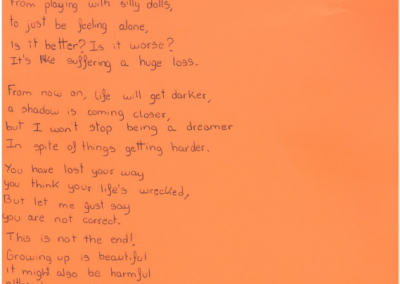 From playing with silly dolls,
to just be feeling alone,
Is it better? Is it worse?
It's like suffering a huge loss.
From now on, life will get darker,
a shadow is coming closer,
but I won't stop being a dreamer
In spite of things getting harder.
You have lost your way
you think your life's wrecked,
But let me just say
you are not correct.
This is not the end!
Growing up is beautiful
it might also be harmful